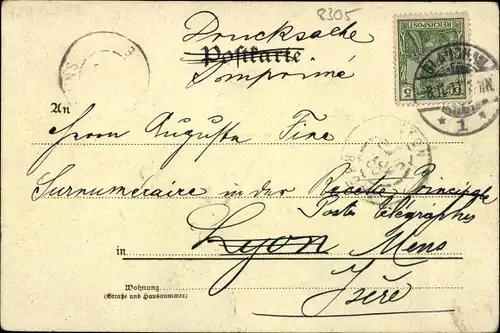 8305
Drucksache
Postkarte
Imprimé
REICHSPOST
5
1
An
Herrn Augusta Fine
Surnuméraire in der Recette Principale
Postes télégraphes
in Lyon Mens
Isère
Wohnung
(Straße und Hausnummer)